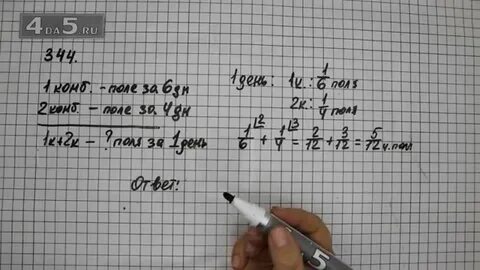 4DA5.RU
344.
1 комб. – поле за 6 дн
2 комб. – поле за 4 дн
1к+2к – ? поля за 1 день
1 день: 1к.: 1/6 поля
2к: 1/4 поля
1/6 ⌊2 + 1/4 ⌊3 = 2/12 + 3/12 = 5/12 ч. поля
Ответ:
5